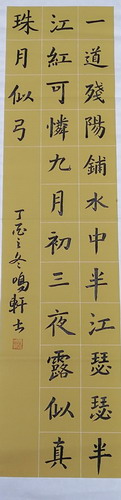 一道殘陽鋪水中半江瑟瑟半
江紅可憐九月初三夜露似真
珠月似弓
丁酉之冬鳴軒書